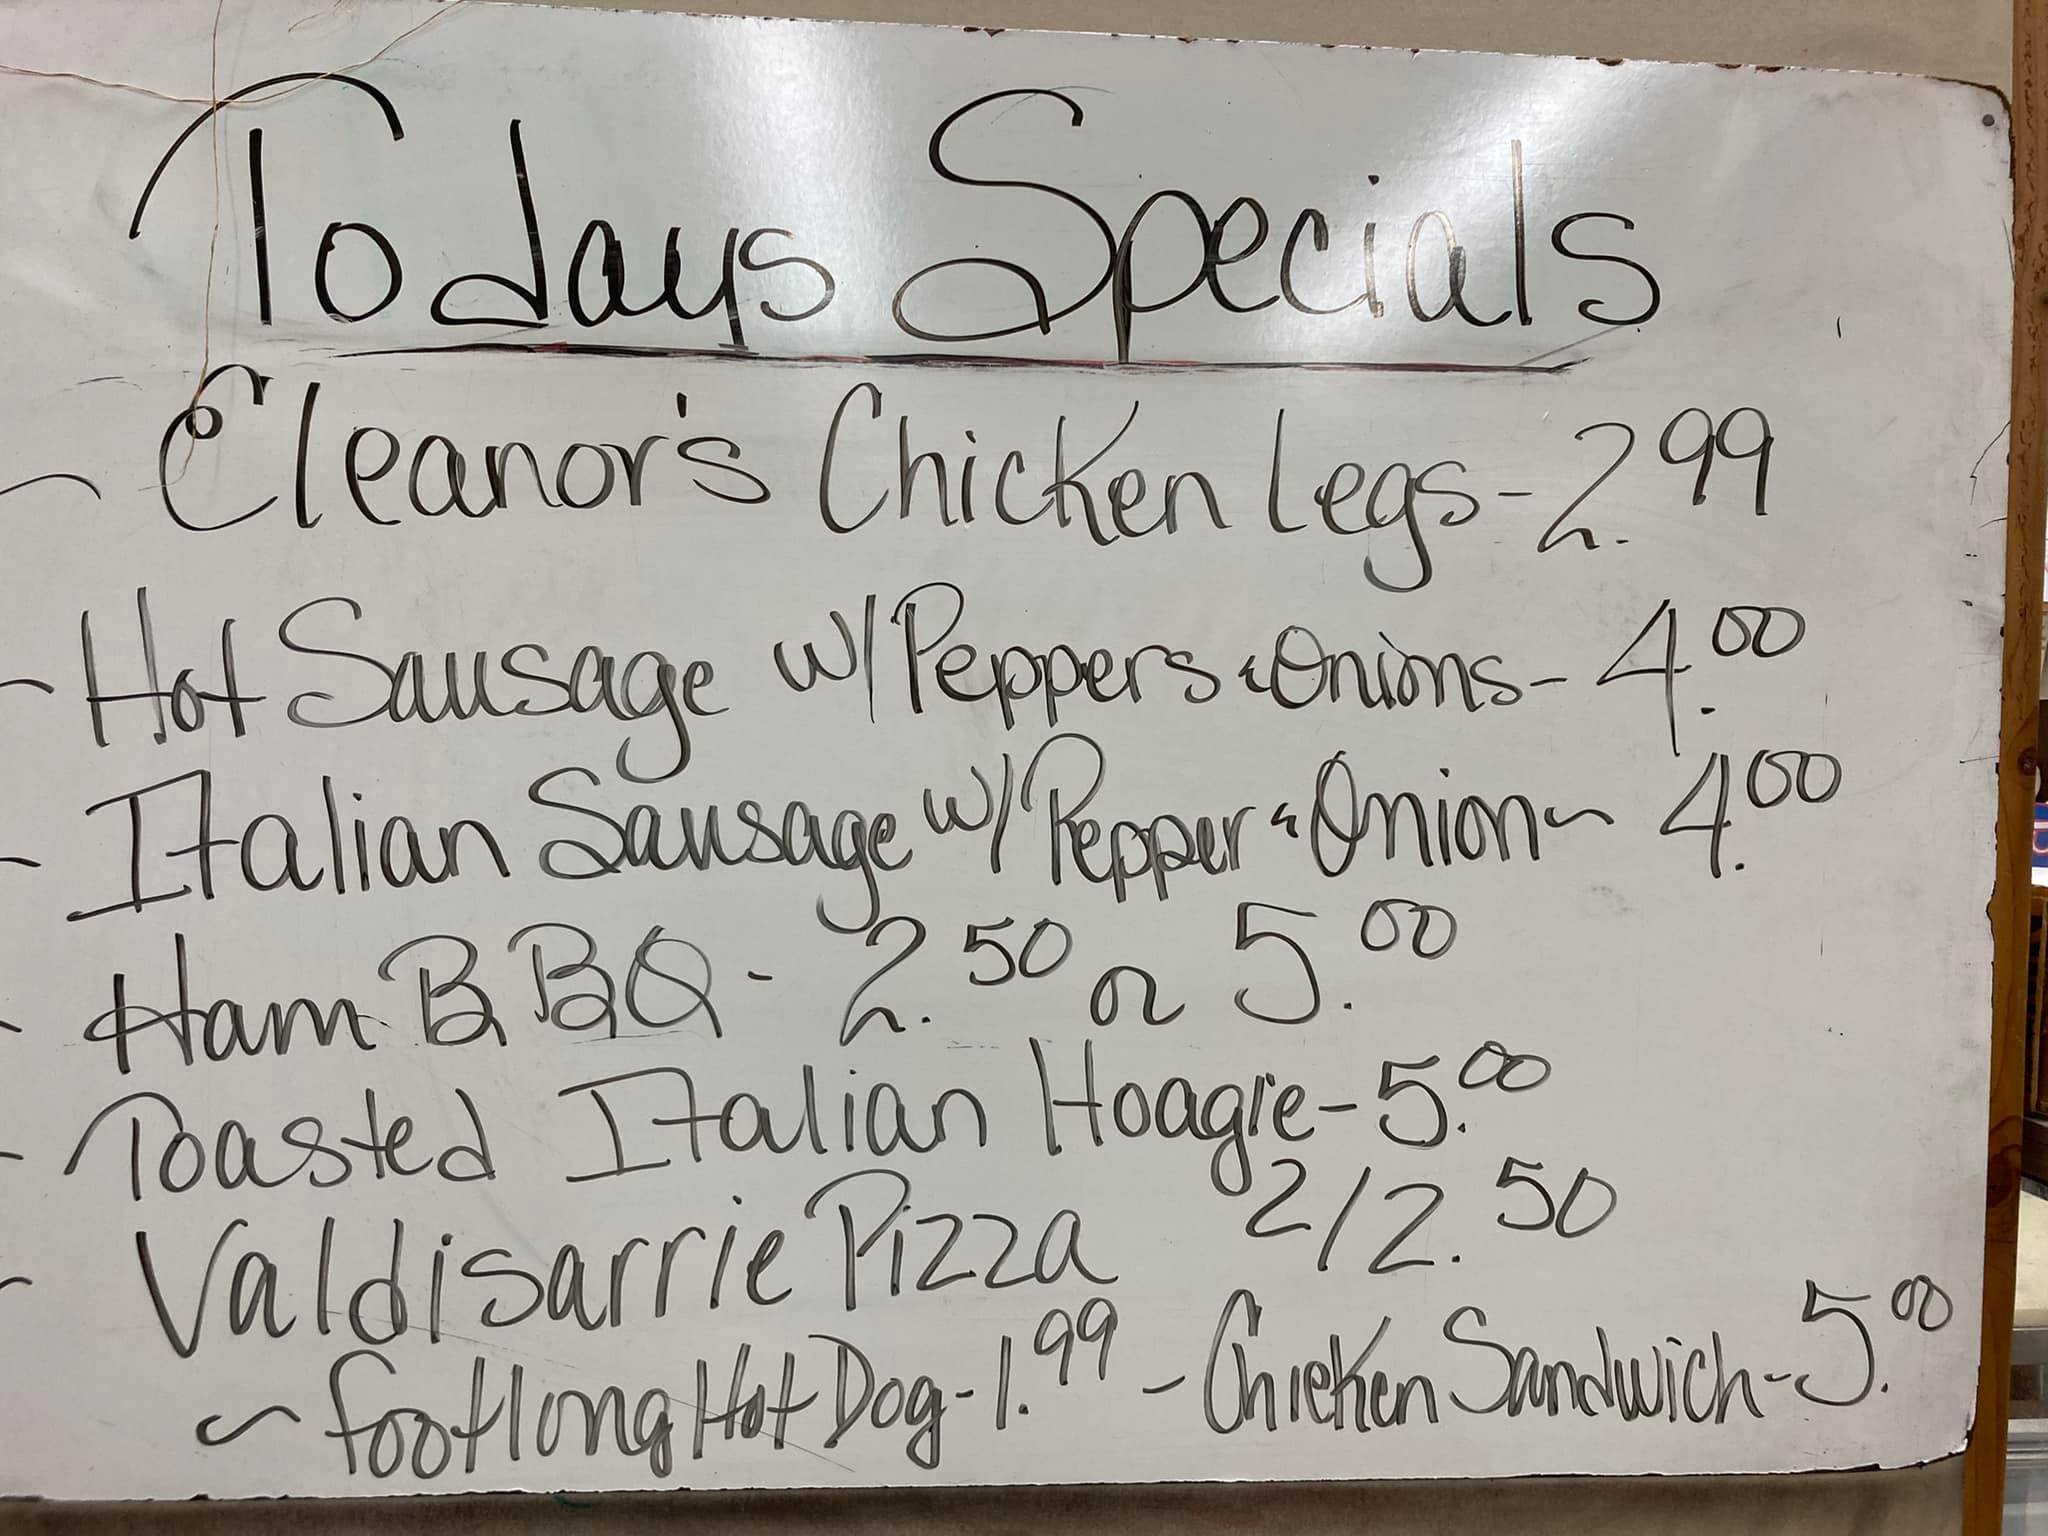 Todays Specials
- Eleanor's Chicken Legs - 2.99
- Hot Sausage w/ Peppers & Onions - 4.00
- Italian Sausage w/ Pepper & Onion ~ 4.00
- Ham BBQ - 2.50 or 5.00
- Toasted Italian Hoagie - 5.00
- Valdisarrie Pizza 2/2.50
~ footlong Hot Dog - 1.99 - Chicken Sandwich - 5.00